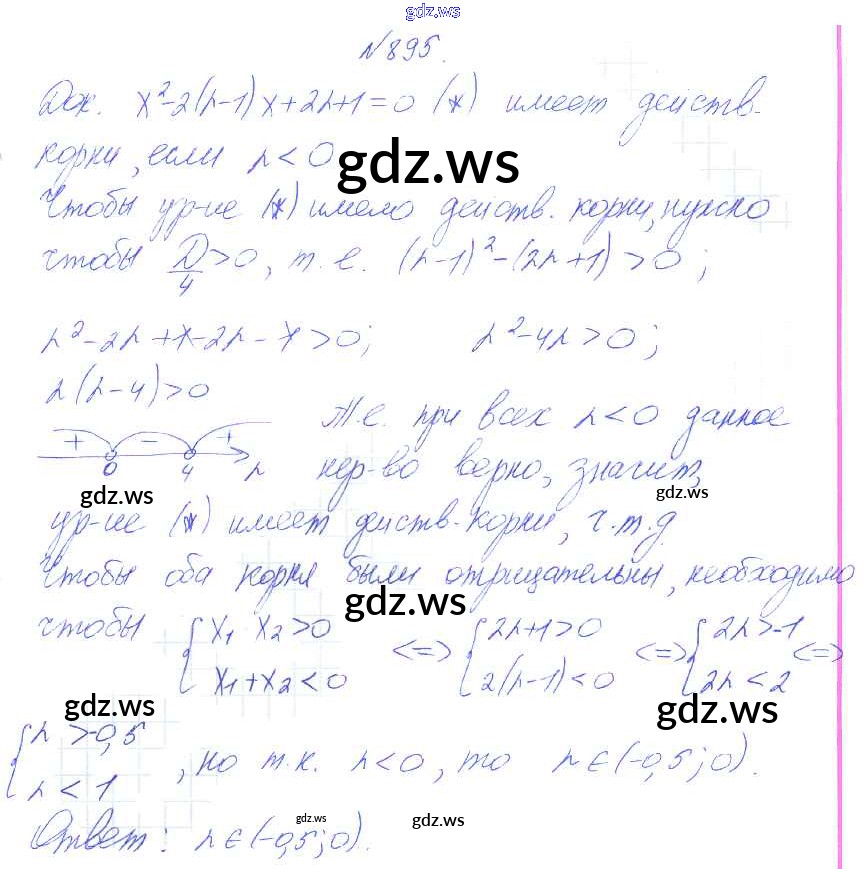 gdz.ws
N895.
Док. x²-2(λ-1)x+2λ+1=0 (*) имеет действ.
корни, если λ<0
gdz.ws
Чтобы ур-ие (*) имело действ. корни, нужно
чтобы D/4>0, т.е. (λ-1)²-(2λ+1)>0;
λ²-2λ+1-2λ-1>0; λ²-4λ>0;
λ(λ-4)>0
+ - + Т.е. при всех λ<0 данное
0 4 λ нер-во верно, значит,
gdz.ws gdz.ws
ур-ие (*) имеет действ. корни, ч.т.д.
Чтобы оба корня были отрицательны, необходимо
gdz.ws
чтобы {x₁ x₂>0 <=> {2λ+1>0 <=> {2λ>-1 <=>
x₁+x₂<0 2(λ-1)<0 2λ<2
gdz.ws gdz.ws
{λ>-0,5
λ<1 , но т.к. λ<0, то λ∈(-0,5;0).
gdz.ws gdz.ws
Ответ: λ∈(-0,5;0).